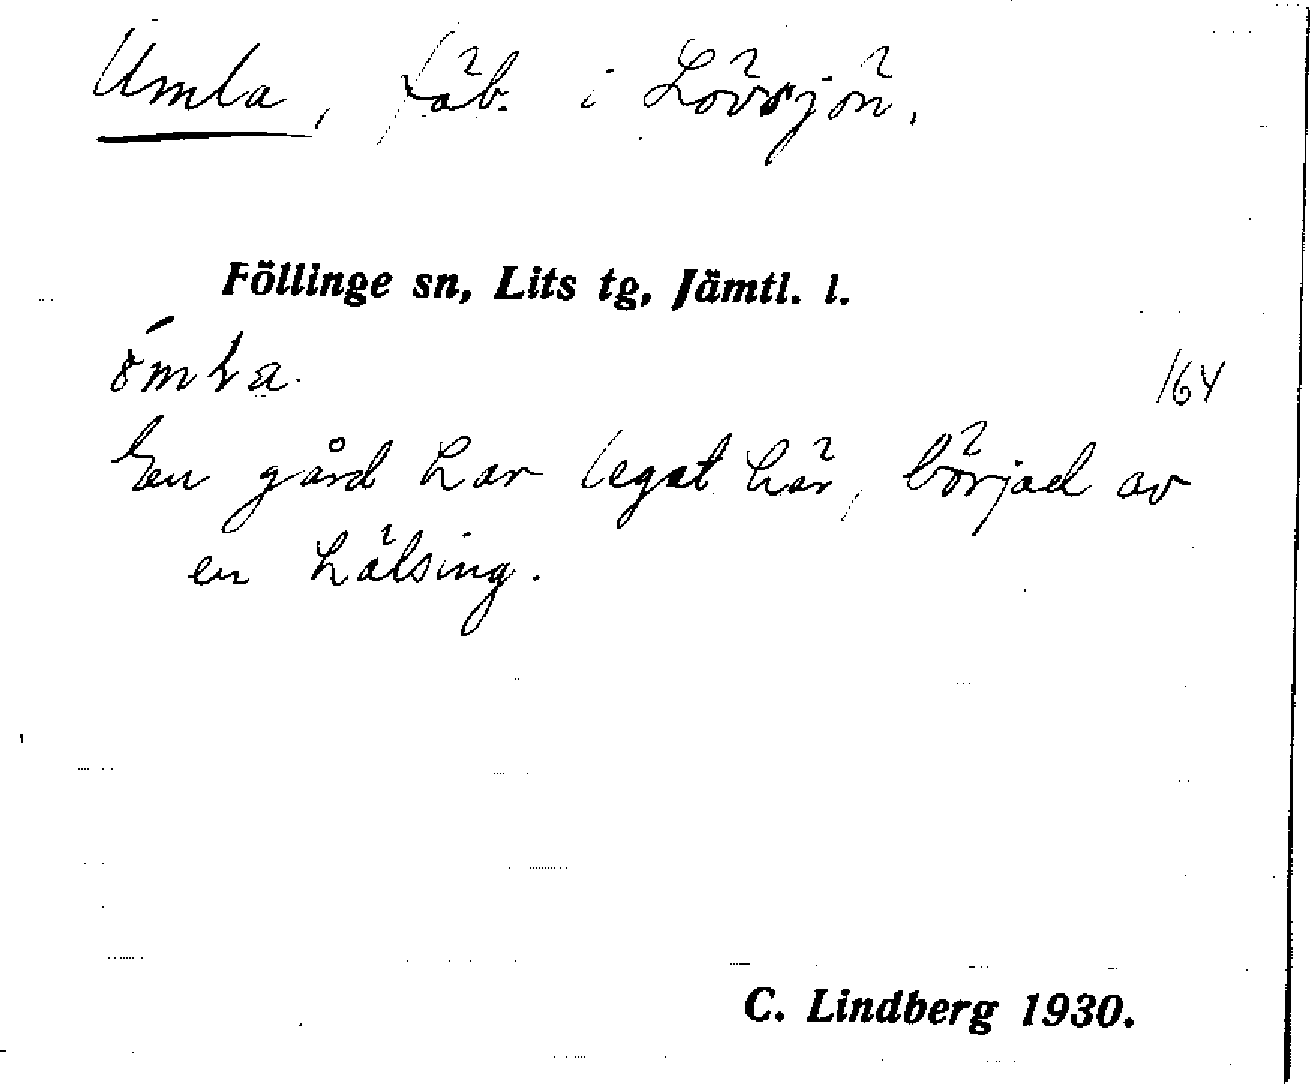 Umla, fäb. i Lövsjön.
Föllinge sn, Lits tg, Jämtl. l.
164
En gård har legat här, börjad av
en hälsing.
C. Lindberg 1930.